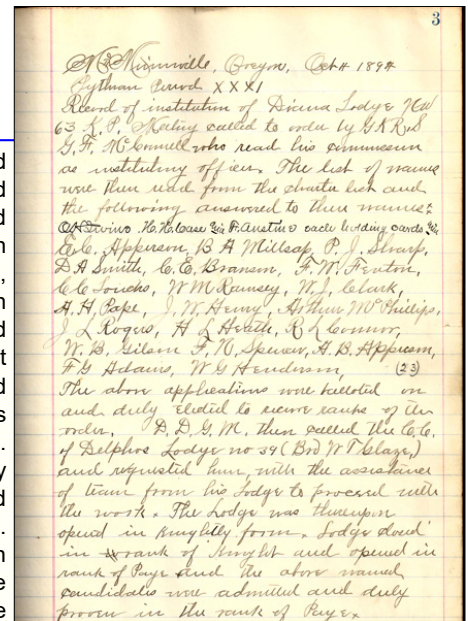 3
McMinnville, Oregon, Oct 4 1894
Pythian Period XXXI
Record of institution of Diana Lodge No
63 K.P. Meeting called to order by G K R & S
G. F. McConnell who read his commission
as instituting officer. The list of names
were then read from the charter list and
the following answered to their names:
H. H. Case F. Austin each holding cards
E. C. Apperson, B A Millsap, P. J. Sharp,
D A Smith, C. E. Branson, F. W. Fenton,
C C W M Ramsey, W. J. Clark,
H. H. Pape, J. W. Henry, Arthur McPhillips,
J L Rogers, H L Heath, R L Connor,
W. B. Gilson F. N. Spencer, A. B. Apperson,
F G Adams, W G Henderson, (23)
The above applications were balloted on
and duly elected to receive ranks of the
order. D. D. G. M. then called the C. C.
of Delphos Lodge no 39 (Bro W T Glaze,)
and requested him, with the assistance
of team from his Lodge to proceed with
the work. The Lodge was thereupon
opened in Knightly form. Lodge closed
in rank of Knight and opened in
rank of Page and the above named
candidates were admitted and duly
proven in the rank of Page.